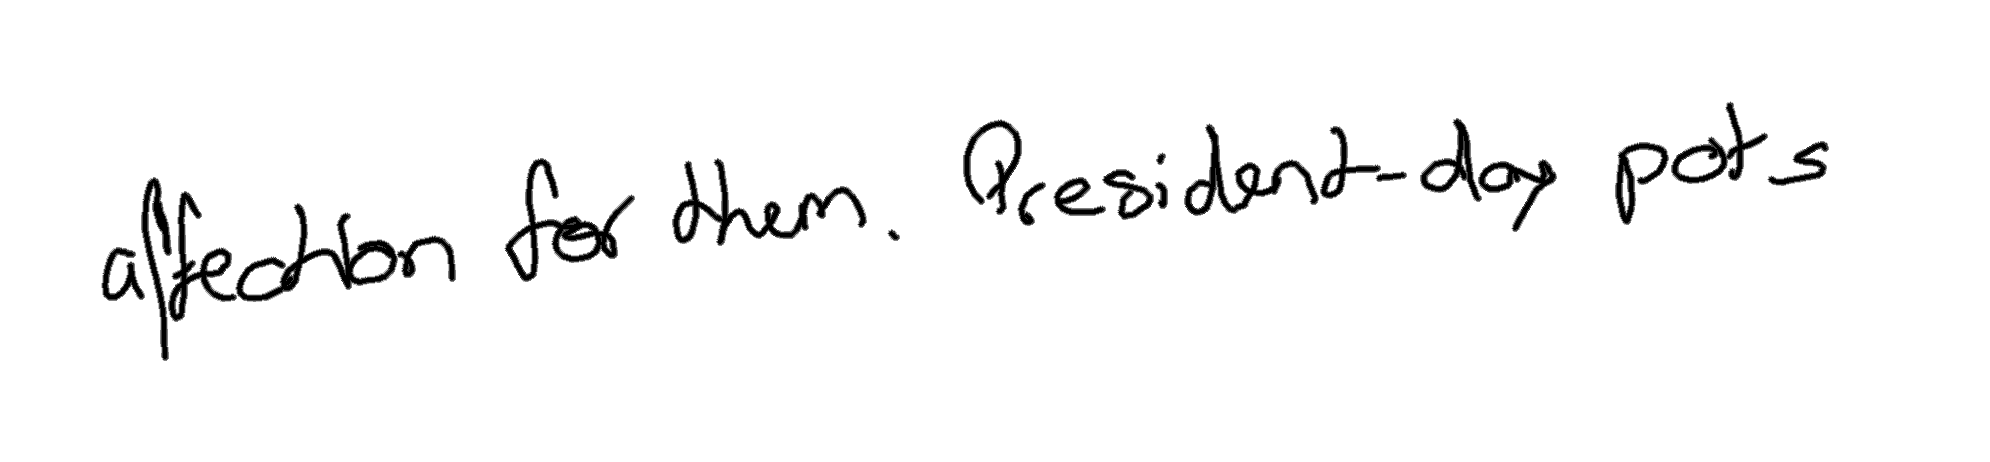 affection for them. President-day pots